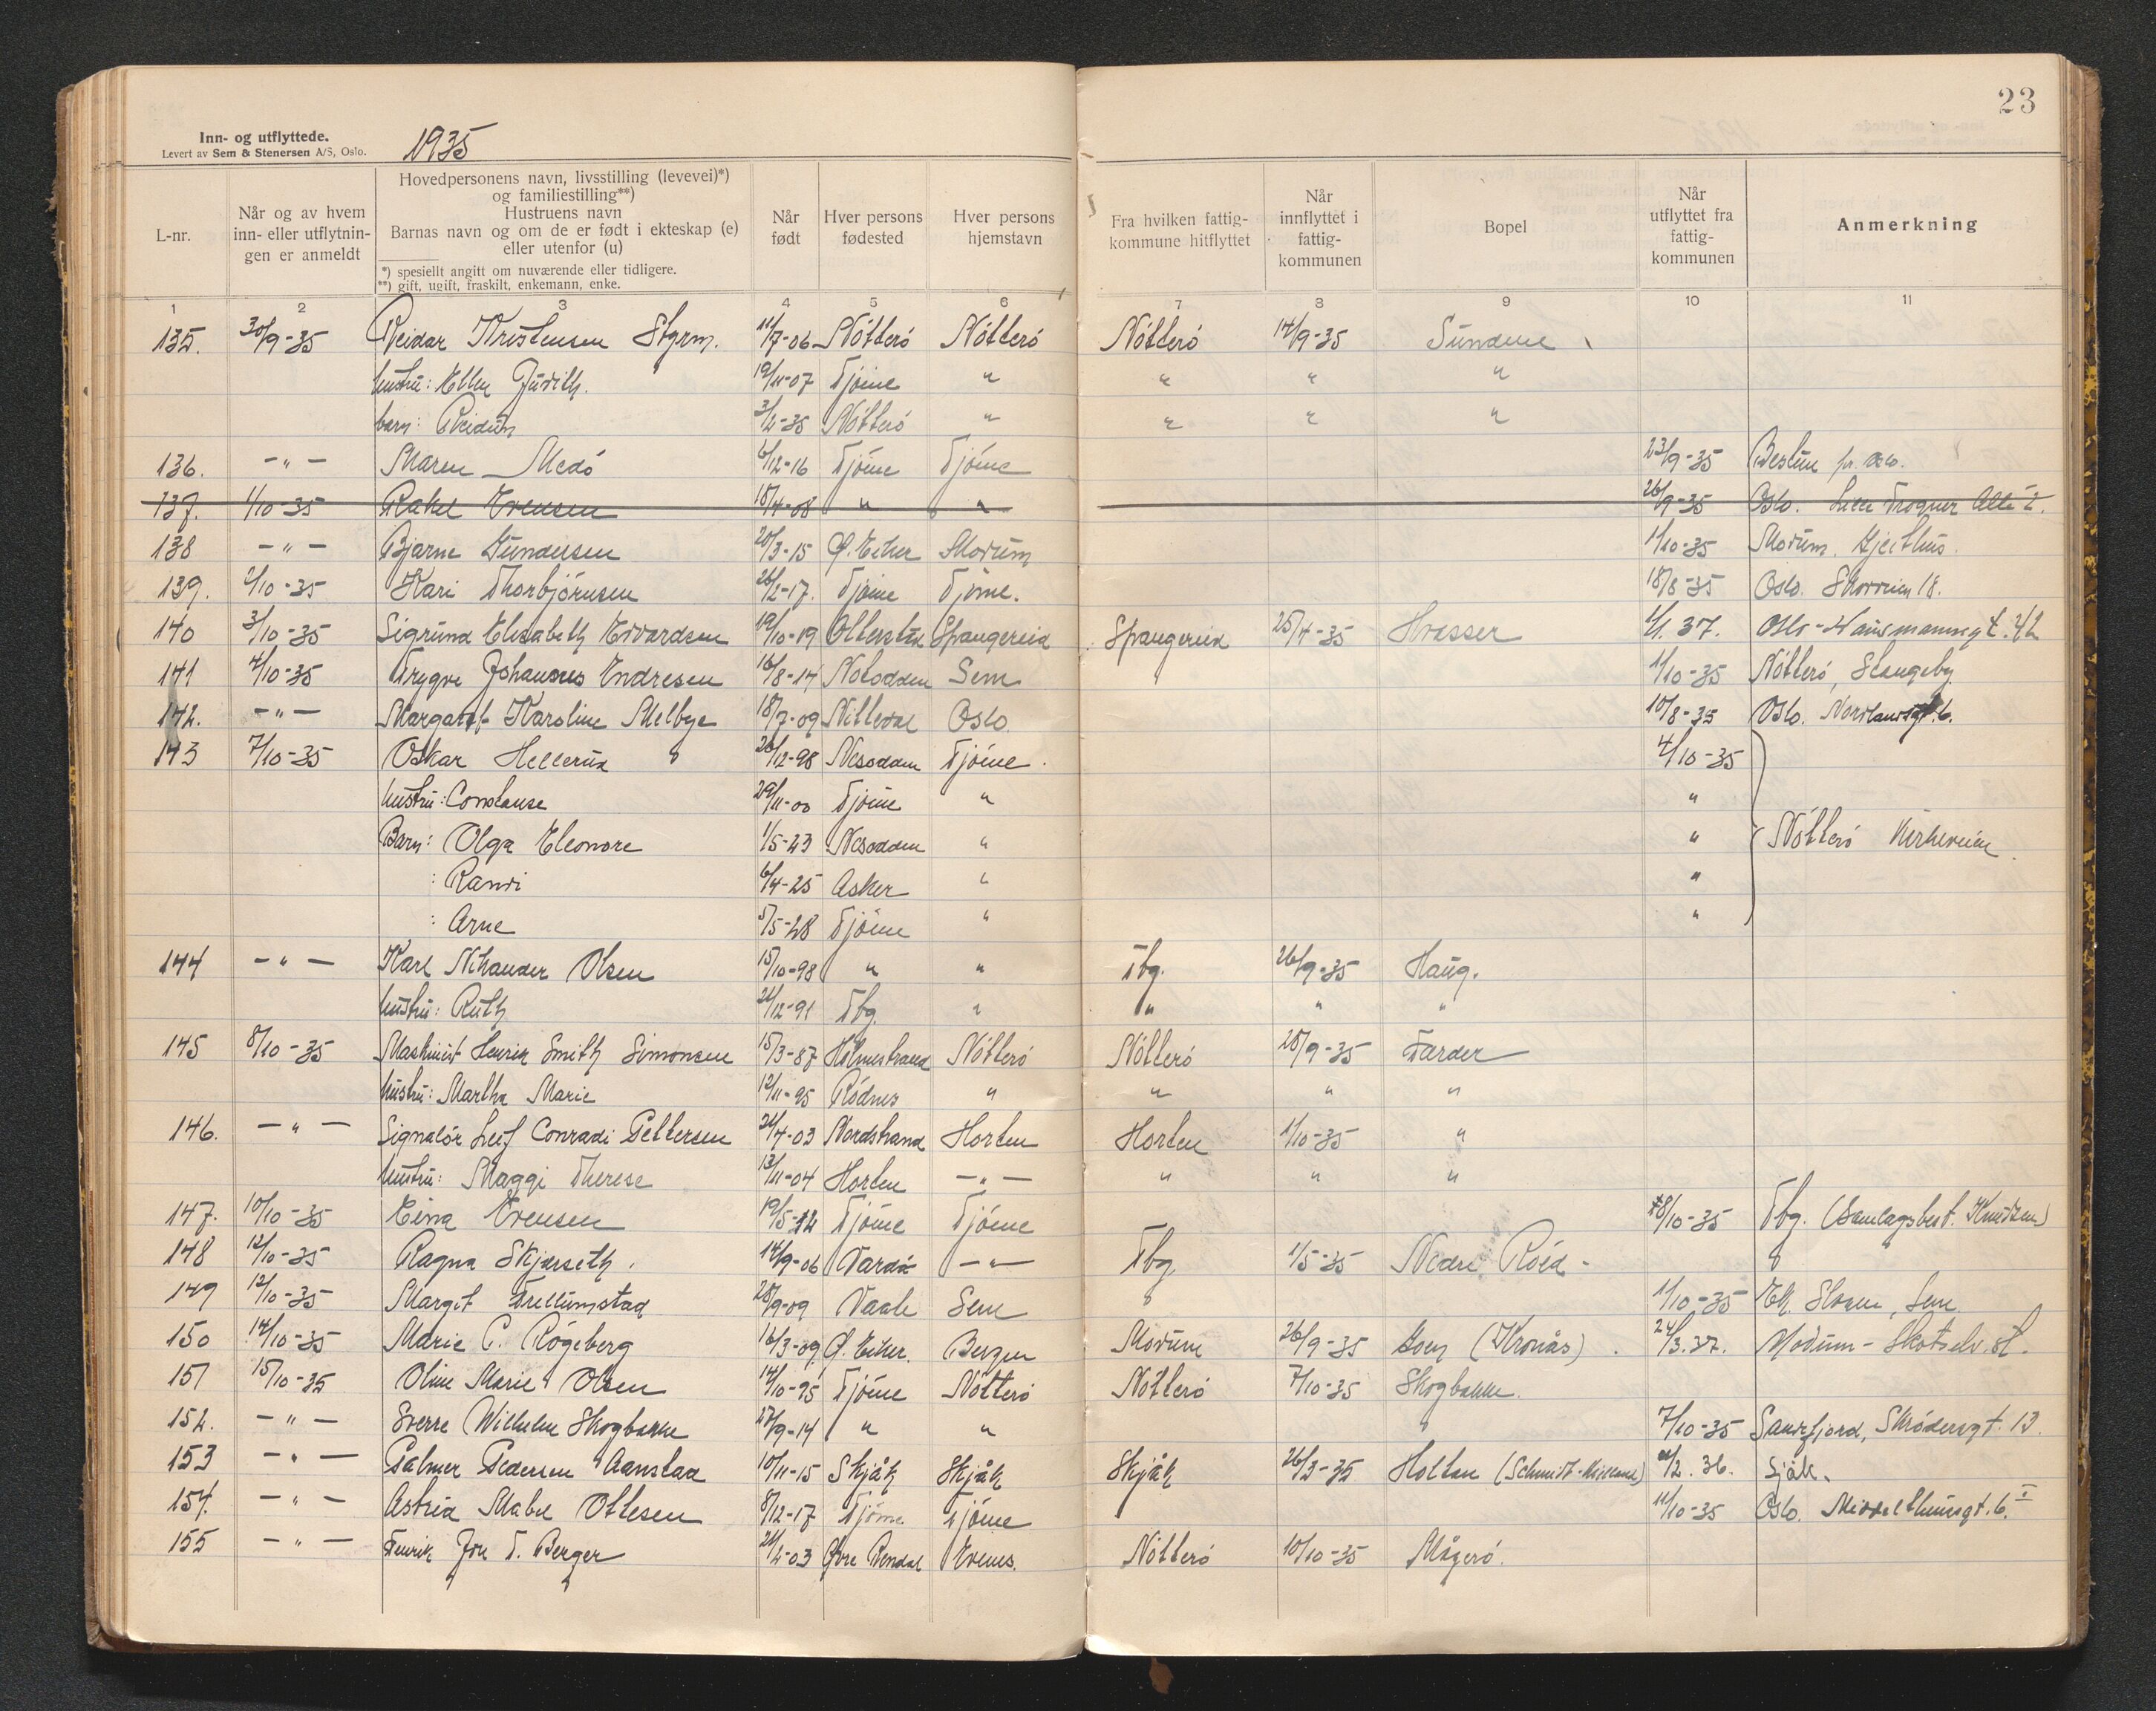 23
Inn- og utflyttede.
Levert av Sem & Stenersen A/S, Oslo.
1935
L-nr.
Når og av hvem inn- eller utflytnin-gen er anmeldt
Hovedpersonens navn, livsstilling (levevei)*)
og familiestilling**)
Hustruens navn
Barnas navn og om de er født i ekteskap (e)
eller utenfor (u)
*) spesiellt angitt om nuværende eller tidligere.
**) gift, ugift, fraskilt, enkemann, enke.
Når født
Hver persons fødested
Hver persons hjemstavn
Fra hvilken fattig-kommune hitflyttet
Når innflyttet i fattig-kommunen
Bopel
Når utflyttet fra fattig-kommunen
Anmerkning
1 2 3 4 5 6 7 8 9 10 11
135. 30/9-35 Reidar Kristensen Styrm. 11/7-06 Nötterö Nötterö Nötterö 14/9-35 Sundene
hustru: Ellen Judith. 19/11-07 Tjöme " " " "
barn: Reidun 3/2-35 Nötterö " " " "
136. -"- Maren Medö 6/12-16 Tjöme Tjöme 23/9-35 Bestum pr. Oslo.
137. 1/10-35 Rakel Evensen 18/4-08 " " 26/9-35 Oslo. Lille Frogner Allé 2.
138 -"- Bjarne Gundersen 20/3-15 Ø. Eiker Modum 1/10-35 Modum. Gjeithus.
139. 2/10-35 Kari Thorbjörnsen 26/2-17. Tjöme Tjöme. 18/8-35 Oslo. Skovveien 18.
140 3/10-35 Sigrund Elisabeth Edvardsen 19/10-19 Spangereid Spangereid 25/4-35 Hvasser 1/1.37. Oslo - Hausmannsgt.
141 4/10-35 Trygve Johannes Endresen 16/8-14 Notodden Sem 1/10-35 Nötterö, Stangeby
142. -"- Margaret Karoline Melbye 18/7-09 Nittedal Oslo. 10/8-35 Oslo. Nordlandsgt. 6.
143 7/10-35 Oskar Hellerud 28/12-98 Nesodden Tjöme. 4/10-35
hustru: Constanse 29/11-00 Tjöme " "
Barn: Olga Eleonore 1/5-23 Nesodden " " Nötterö Kirkeveien.
: Randi 6/4-25 Asker " "
: Arne 5/5-28 Tjöme " "
144 -"- Karl Nikander Olsen 15/10-98 " " Tbg. 26/9-35 Haug.
hustru: Ruth 21/12-91 Tbg. " " " "
145 8/10-35 Maskinist Henrik Smith Simonsen 15/3-87 Holmestrand Nötterö Nötterö 28/9-35 Færder
hustru: Martha Marie 12/11-95 Rödnes " " " "
146. -"- Signalör Leif Conradi Pettersen 21/4-03 Nordstrand Horten Horten 1/10-35 "
hustru: Maggi Therese 13/11-04 Horten -"- " " "
147. 10/10-35 Eina Evensen 19/5-12 Tjöme Tjöme 8/10-35 Tbg. (Samlagsbest. Knudsen)
148 12/10-35 Ragna Skjærseth. 14/9-06 Vardö -"- Tbg 1/5-35 Nedre Röed -
149 12/10-35 Margit Trellumstad 28/9-09 Vaale Sem 1/10-35 Ek. Slagen, Sem
150 14/10-35 Marie C. Rögeberg 16/3-09 Ø. Eiker. Bergen Modum 26/9-35 Goen (Kronås). 24/3.37. Modum - Skotselv. st.
151 15/10-35 Oline Marie Olsen 14/10-95 Tjöme Nötterö Nötterö 7/10-35 Skogbakke.
152. -"- Sverre Wilhelm Skogbakke 27/9-14 " " 7/10-35 Sandefjord, Skrödersgt. 13.
153 -"- Palmer Pedersen Aanstad 10/11-15 Skjåk Skjåk Skjåk 26/3-35 Holtan (Schmidt-) /2.36. Sjåk.
154. -"- Astrid Mabel Ottesen 8/12-17 Tjöme Tjöme 11/10-35 Oslo. Middelthunsgt. 6. I
155 -"- Jon T. Berger 21/2-03 Øvre Rendal Evenes. Nötterö 10/10-35 Mågerö.